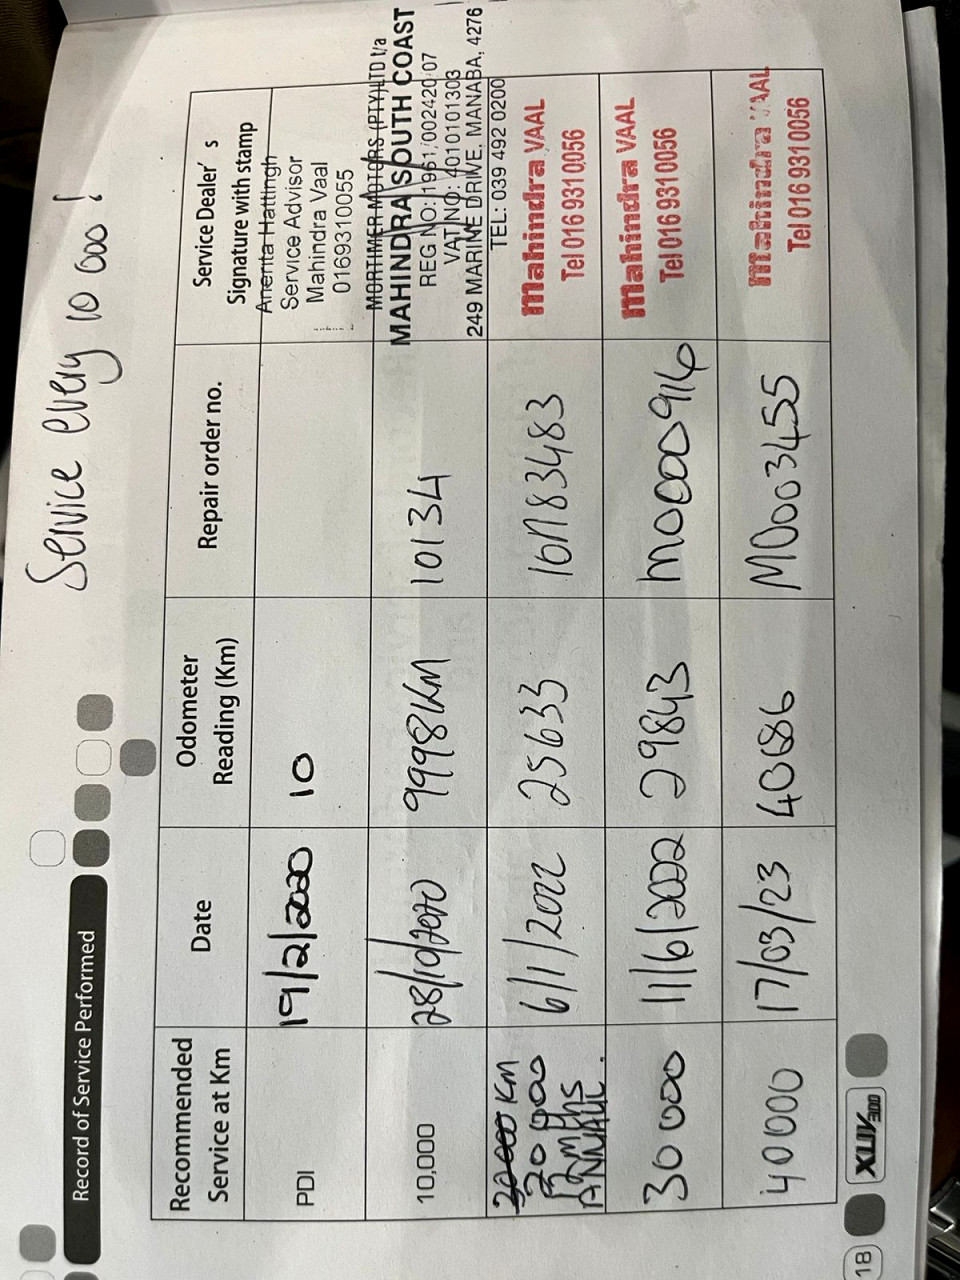 Service every 10 000!
Record of Service Performed
Recommended Service at Km
Date
Odometer Reading (Km)
Repair order no.
Service Dealer's Signature with stamp
PDI
19/2/2020
10
Anenta Hattingh
Service Advisor
Mahindra Vaal
0169310055
10,000
28/10/2020
9998KM
10134
MORTIMER MOTORS (PTY) LTD t/a
MAHINDRA SOUTH COAST
REG NO: 1961/002420/07
VAT NO: 4010101303
249 MARINE DRIVE, MANABA, 4276
TEL: 039 492 0200
KM
20 000
12 mths
ANNAUL.
6/1/2022
25633
16N83483
Mahindra VAAL
Tel 016 931 0056
30 000
11/6/2022
29843
M0000916
Mahindra VAAL
Tel 016 931 0056
40000
17/03/23
40686
M0003455
Mahindra VAAL
Tel 016 931 0056
18
XUV300